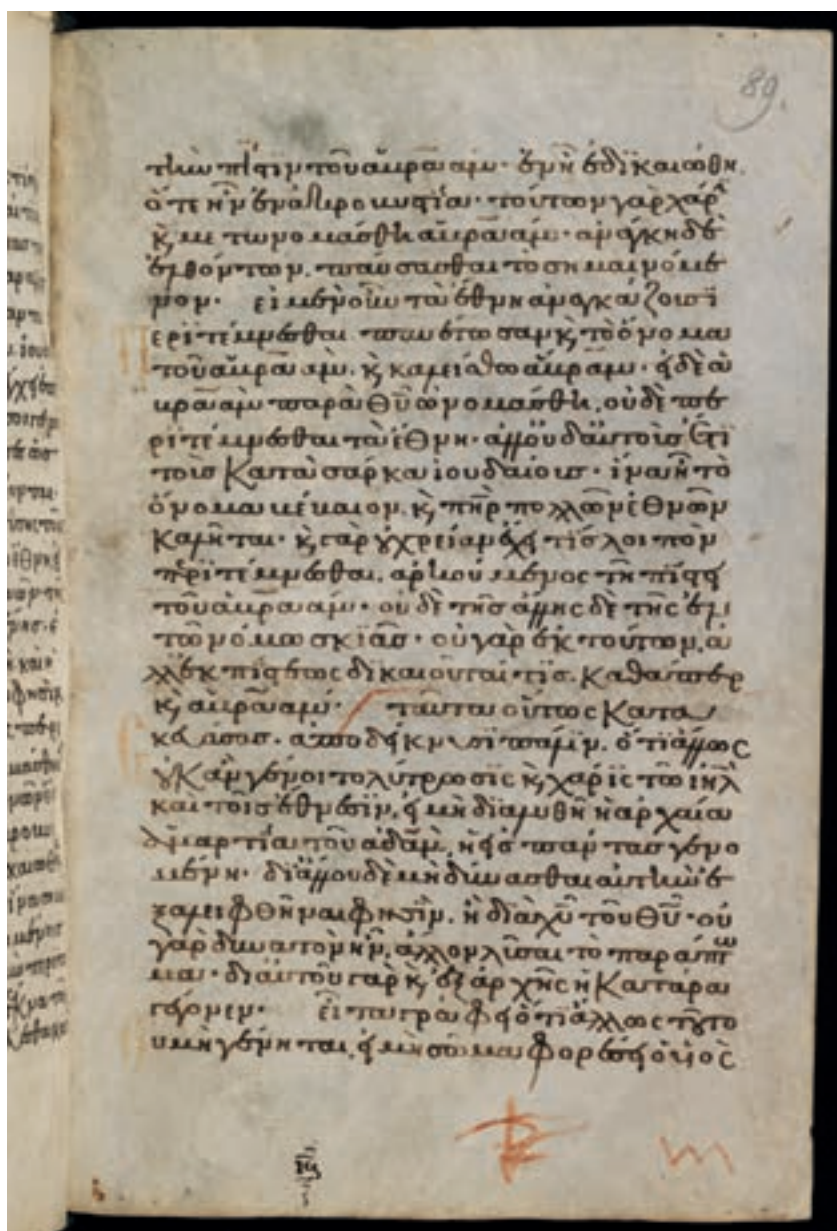 τὴν πίστιν τοῦ ἀβραάμ· ἐν ἧ ἐδικαιώθη,
ὅτε ἦν ἐν ἀκροβυστίαι· τούτων γὰρ χάρϊ
κ, μετωνομάσθη ἀβραάμ· ἀνάγκη δὲ
ἐλθόντων, παύσασθαι τὸ σημαινόμε
νον· εἰ μὲν οὖν τὰ ἔθνη ἀναγκάζουσϊ
Περϊτέμνεσθαι· παυέτωσαν κ, τὸ ὄνομα
τοῦ ἀβραάμ, κ, καλείσθω ἄβραμ· εἰ δὲ ἀ
βραὰμ παρὰ θῦ ὠνομάσθη, οὐδὲ πε
ρϊτέμνεσθαι τὰ ἔθνη· ἀλλ' οὐδ' αὐτοῖς ἔτϊ
τοῖς κατὰ σάρκα ϊουδαίοις· ἵνα ἦ τὸ
ὄνομα βέβαιον, κ, πῆρ πολλῶν ἐθνῶν
καλῆται· κ, γὰρ οὐ χρεία λοιπὸν
περϊτέμνεσθαι, ἀρκούμενος τῆ πίστει
τοῦ ἀβραάμ· οὐδὲ τῆς ἄλλης δὲ τῆς ἐν
τῶ νόμω σκιᾶς· οὐ γὰρ ἐκ τούτων, ἀ
λλ' ἐκ πίστεως δικαιοῦταί τϊς. καθάπερ
κ, ἀβραάμ· ταῦτα οὕτως κατα
Σκευάσας· ἀποδείκνυσϊ πάλϊν, ὅτϊ ἄλλως
οὐκ ἂν γένοιτο λύτρωσϊς κ, χάρϊς τῶ ιῆλ
καὶ τοῖς ἔθνεσϊν, εἰ μὴ διαλυθῆ ἡ ἀρχαία
ἁμαρτία τοῦ ἀδάμ, ἡ εἰς πάντας γενο
μένη· δι' ἄλλου δὲ μὴ δύνασθαι αὐτὴν ἐ
ξαλειφθῆναι φησὶν, ἢ διὰ χῦ τοῦ θῦ· οὐ
γὰρ δυνατὸν ἦν, ἄλλον λῦσαι τὸ παράπτω
μα· δι' αὐτοῦ γὰρ κ, ἐξ ἀρχῆς ἡ κατάρα
γέγονεν· εἶτα γράφει ὅτϊ ἄλλως τοῦτο
οὐ μὴ γένηται, εἰ μὴ σῶμα φορέσει ὁ υἱὸς
89.